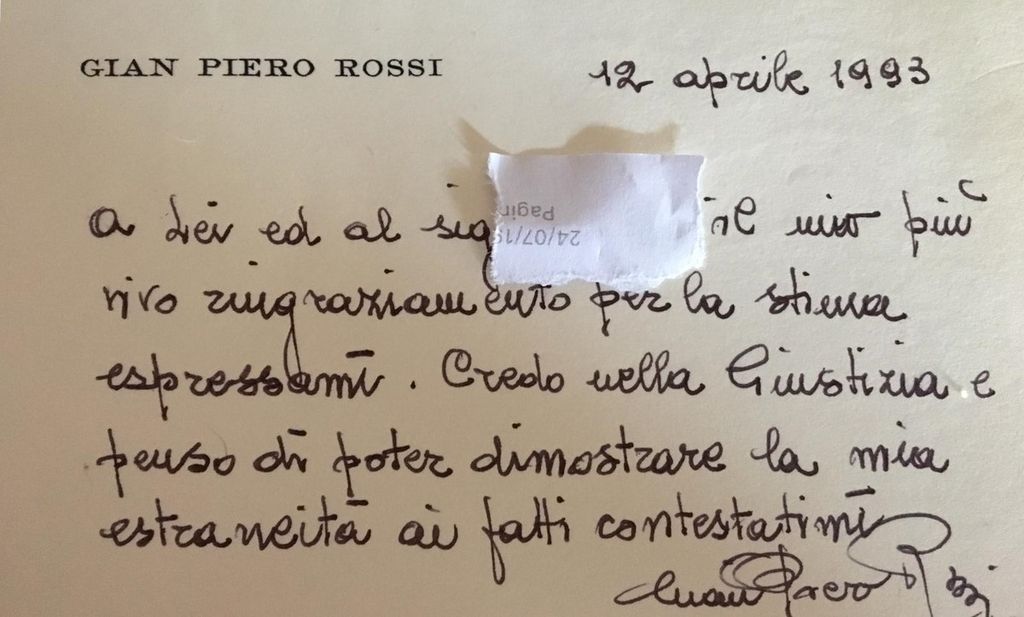 GIAN PIERO ROSSI 12 aprile 1993
a Lei ed al sig il mio più
24/07/19
Pagin
vivo ringraziamento per la stima
espressami. Credo nella Giustizia e
penso di poter dimostrare la mia
estraneità ai fatti contestatimi
Gian Piero Rossi